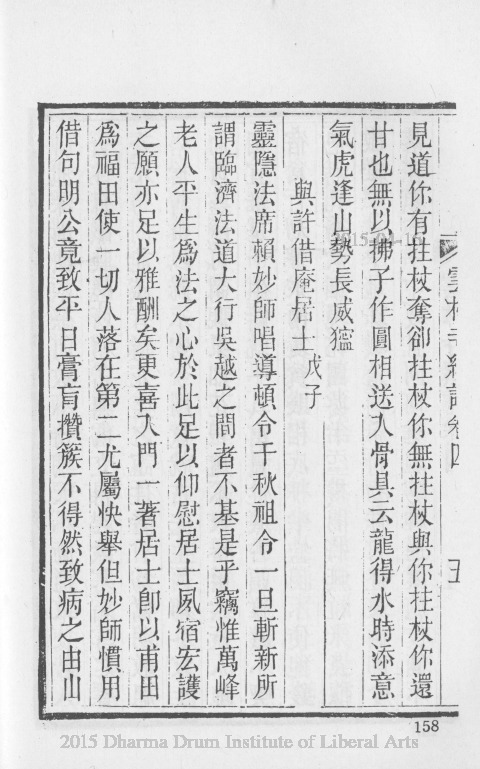 見道你有拄杖奪卻拄杖你無拄杖與你拄杖你還
甘也無以拂子作圓相送入骨具云龍得水時添意
氣虎逢山勢長威獰
與許借庵居士戊子
靈隱法席賴妙師唱導頓令千秋祖令一旦斬新所
謂臨濟法道大行吳越之間者不基是乎竊惟萬峰
老人平生爲法之心於此足以仰慰居士夙宿宏護
之願亦足以雅酬矣更喜入門一著居士卽以甫田
爲福田使一切人落在第二尤屬快舉但妙師慣用
借句明公竟致平日膏肓攢簇不得然致病之由山
卷四
五
158
2015 Dharma Drum Institute of Liberal Arts